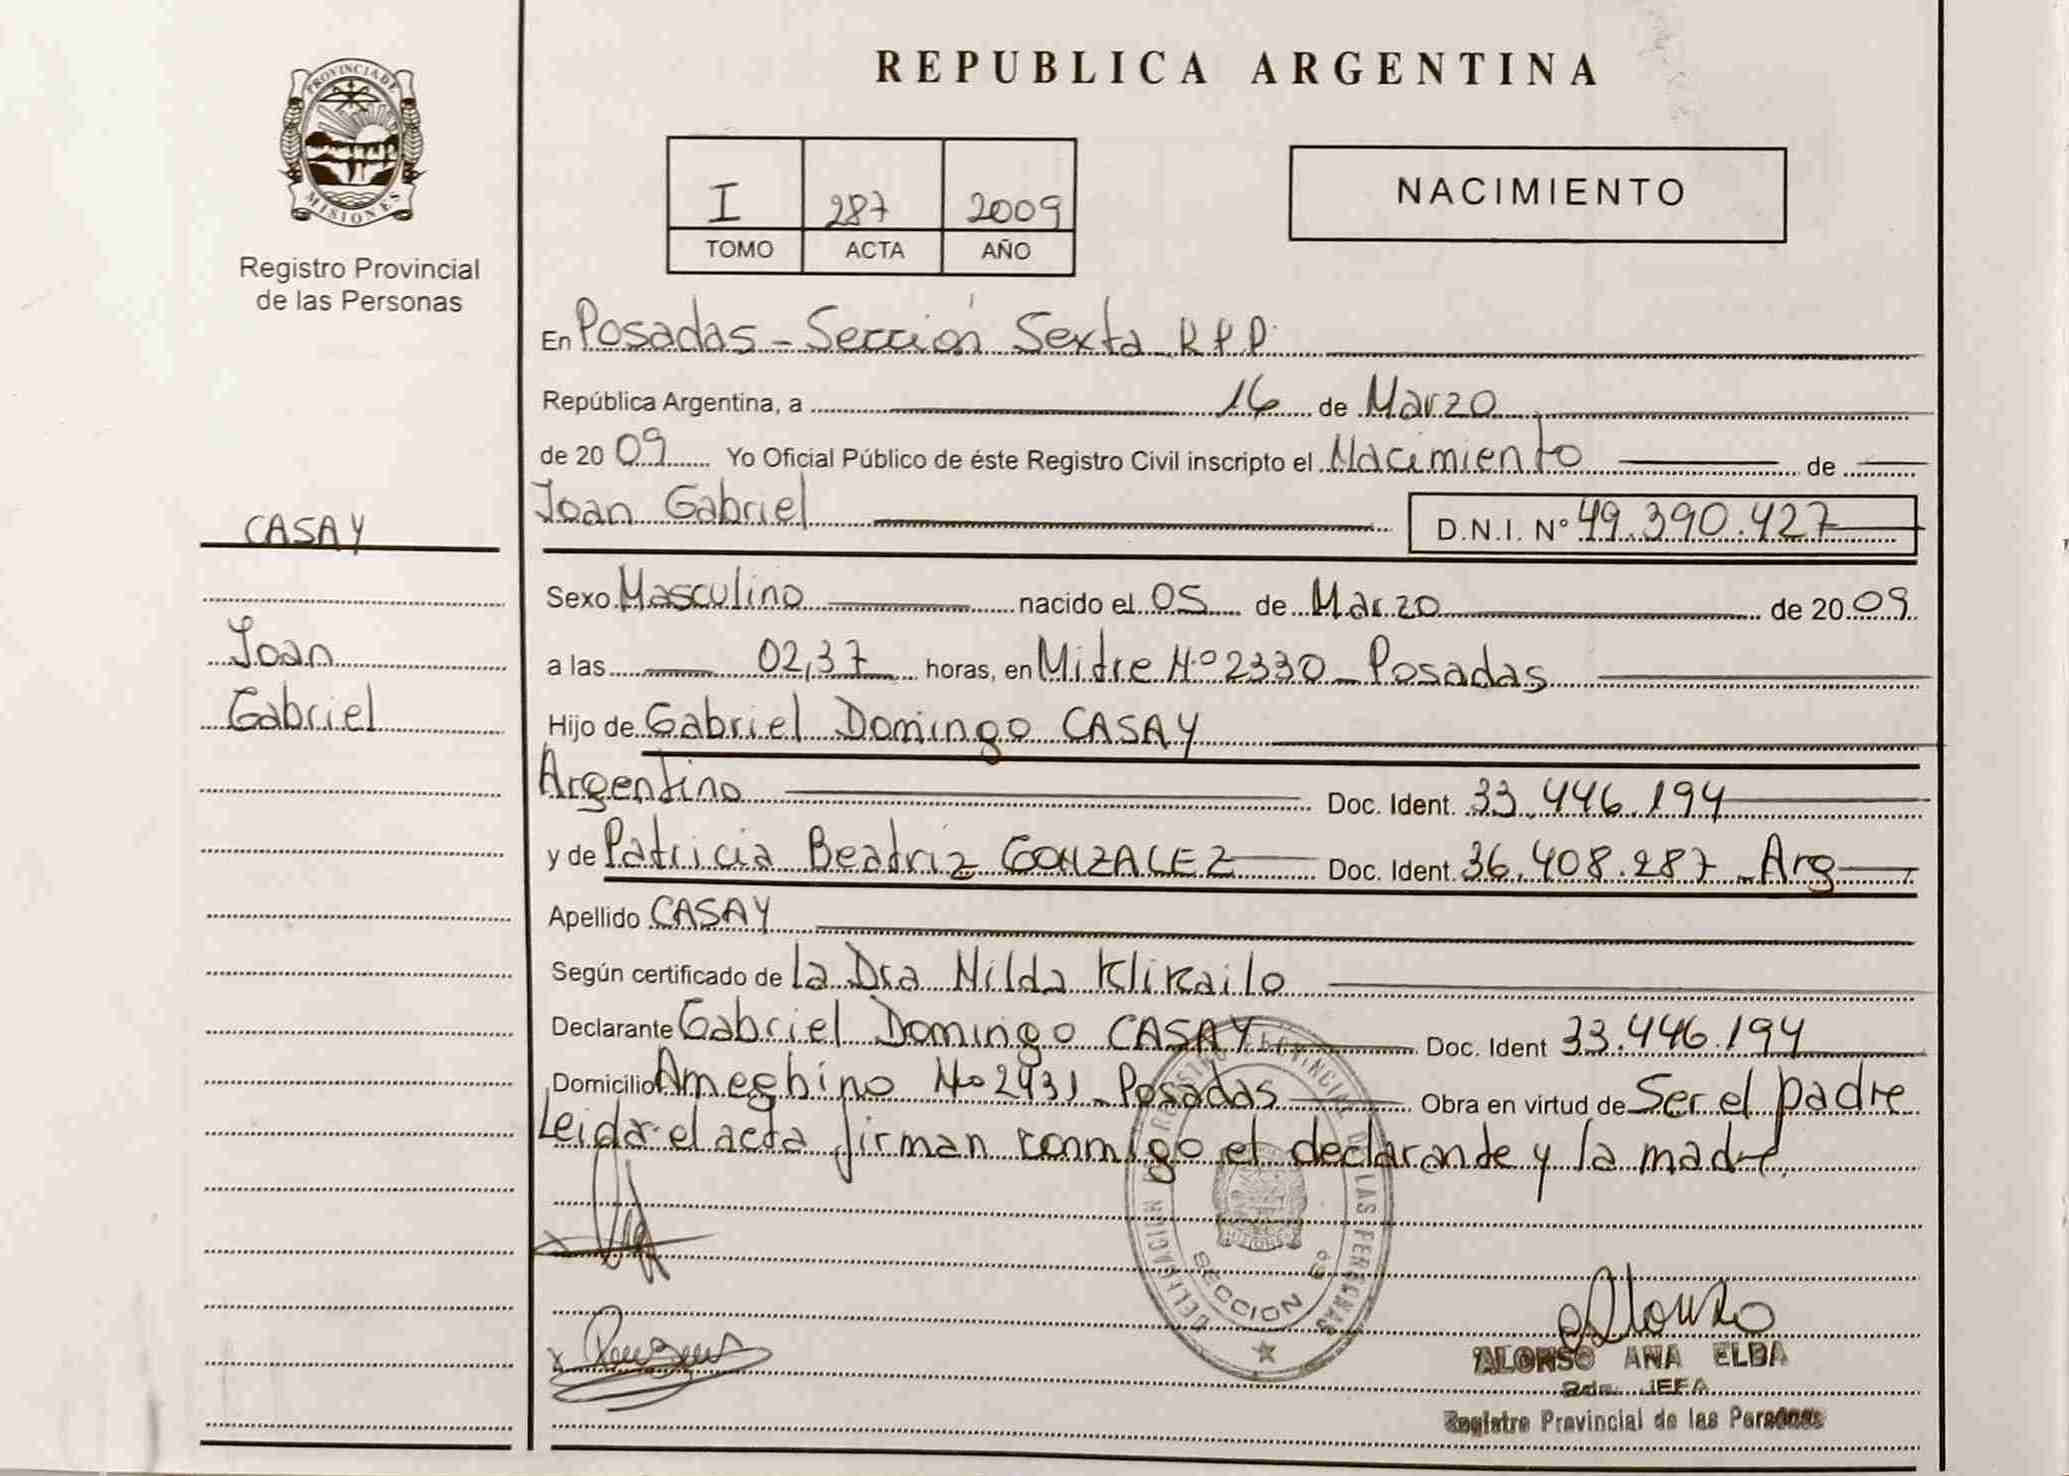 REPUBLICA ARGENTINA
PROVINCIA DE
MISIONES
Registro Provincial
de las Personas
I 287 2009
TOMO ACTA AÑO
NACIMIENTO
En Posadas - Sección Sexta R.P.P.
República Argentina, a 16 de Marzo
de 20 09 Yo Oficial Público de éste Registro Civil inscripto el Nacimiento de
Joan Gabriel D.N.I. Nº 49.390.427
CASAY
Joan
Gabriel
Sexo Masculino nacido el 05 de Marzo de 20 09
a las 02,37 horas, en Mitre Nº 2330 - Posadas
Hijo de Gabriel Domingo CASAY
Argentino Doc. Ident. 33.446.194
y de Patricia Beatriz GONZALEZ Doc. Ident. 36.408.287 - Arg
Apellido CASAY
Según certificado de la Dra Nilda Klikailo
Declarante Gabriel Domingo CASAY Doc. Ident 33.446.194
Domicilio Ameghino Nº 2431 - Posadas Obra en virtud de Ser el padre
Leida el acta firman conmigo el declarante y la madre.
REGISTRO PROVINCIAL DE LAS PERSONAS
DELEGACION
SECCION 6º
Alonso
ALONSO ANA ELBA
JEFA
Registro Provincial de las Personas